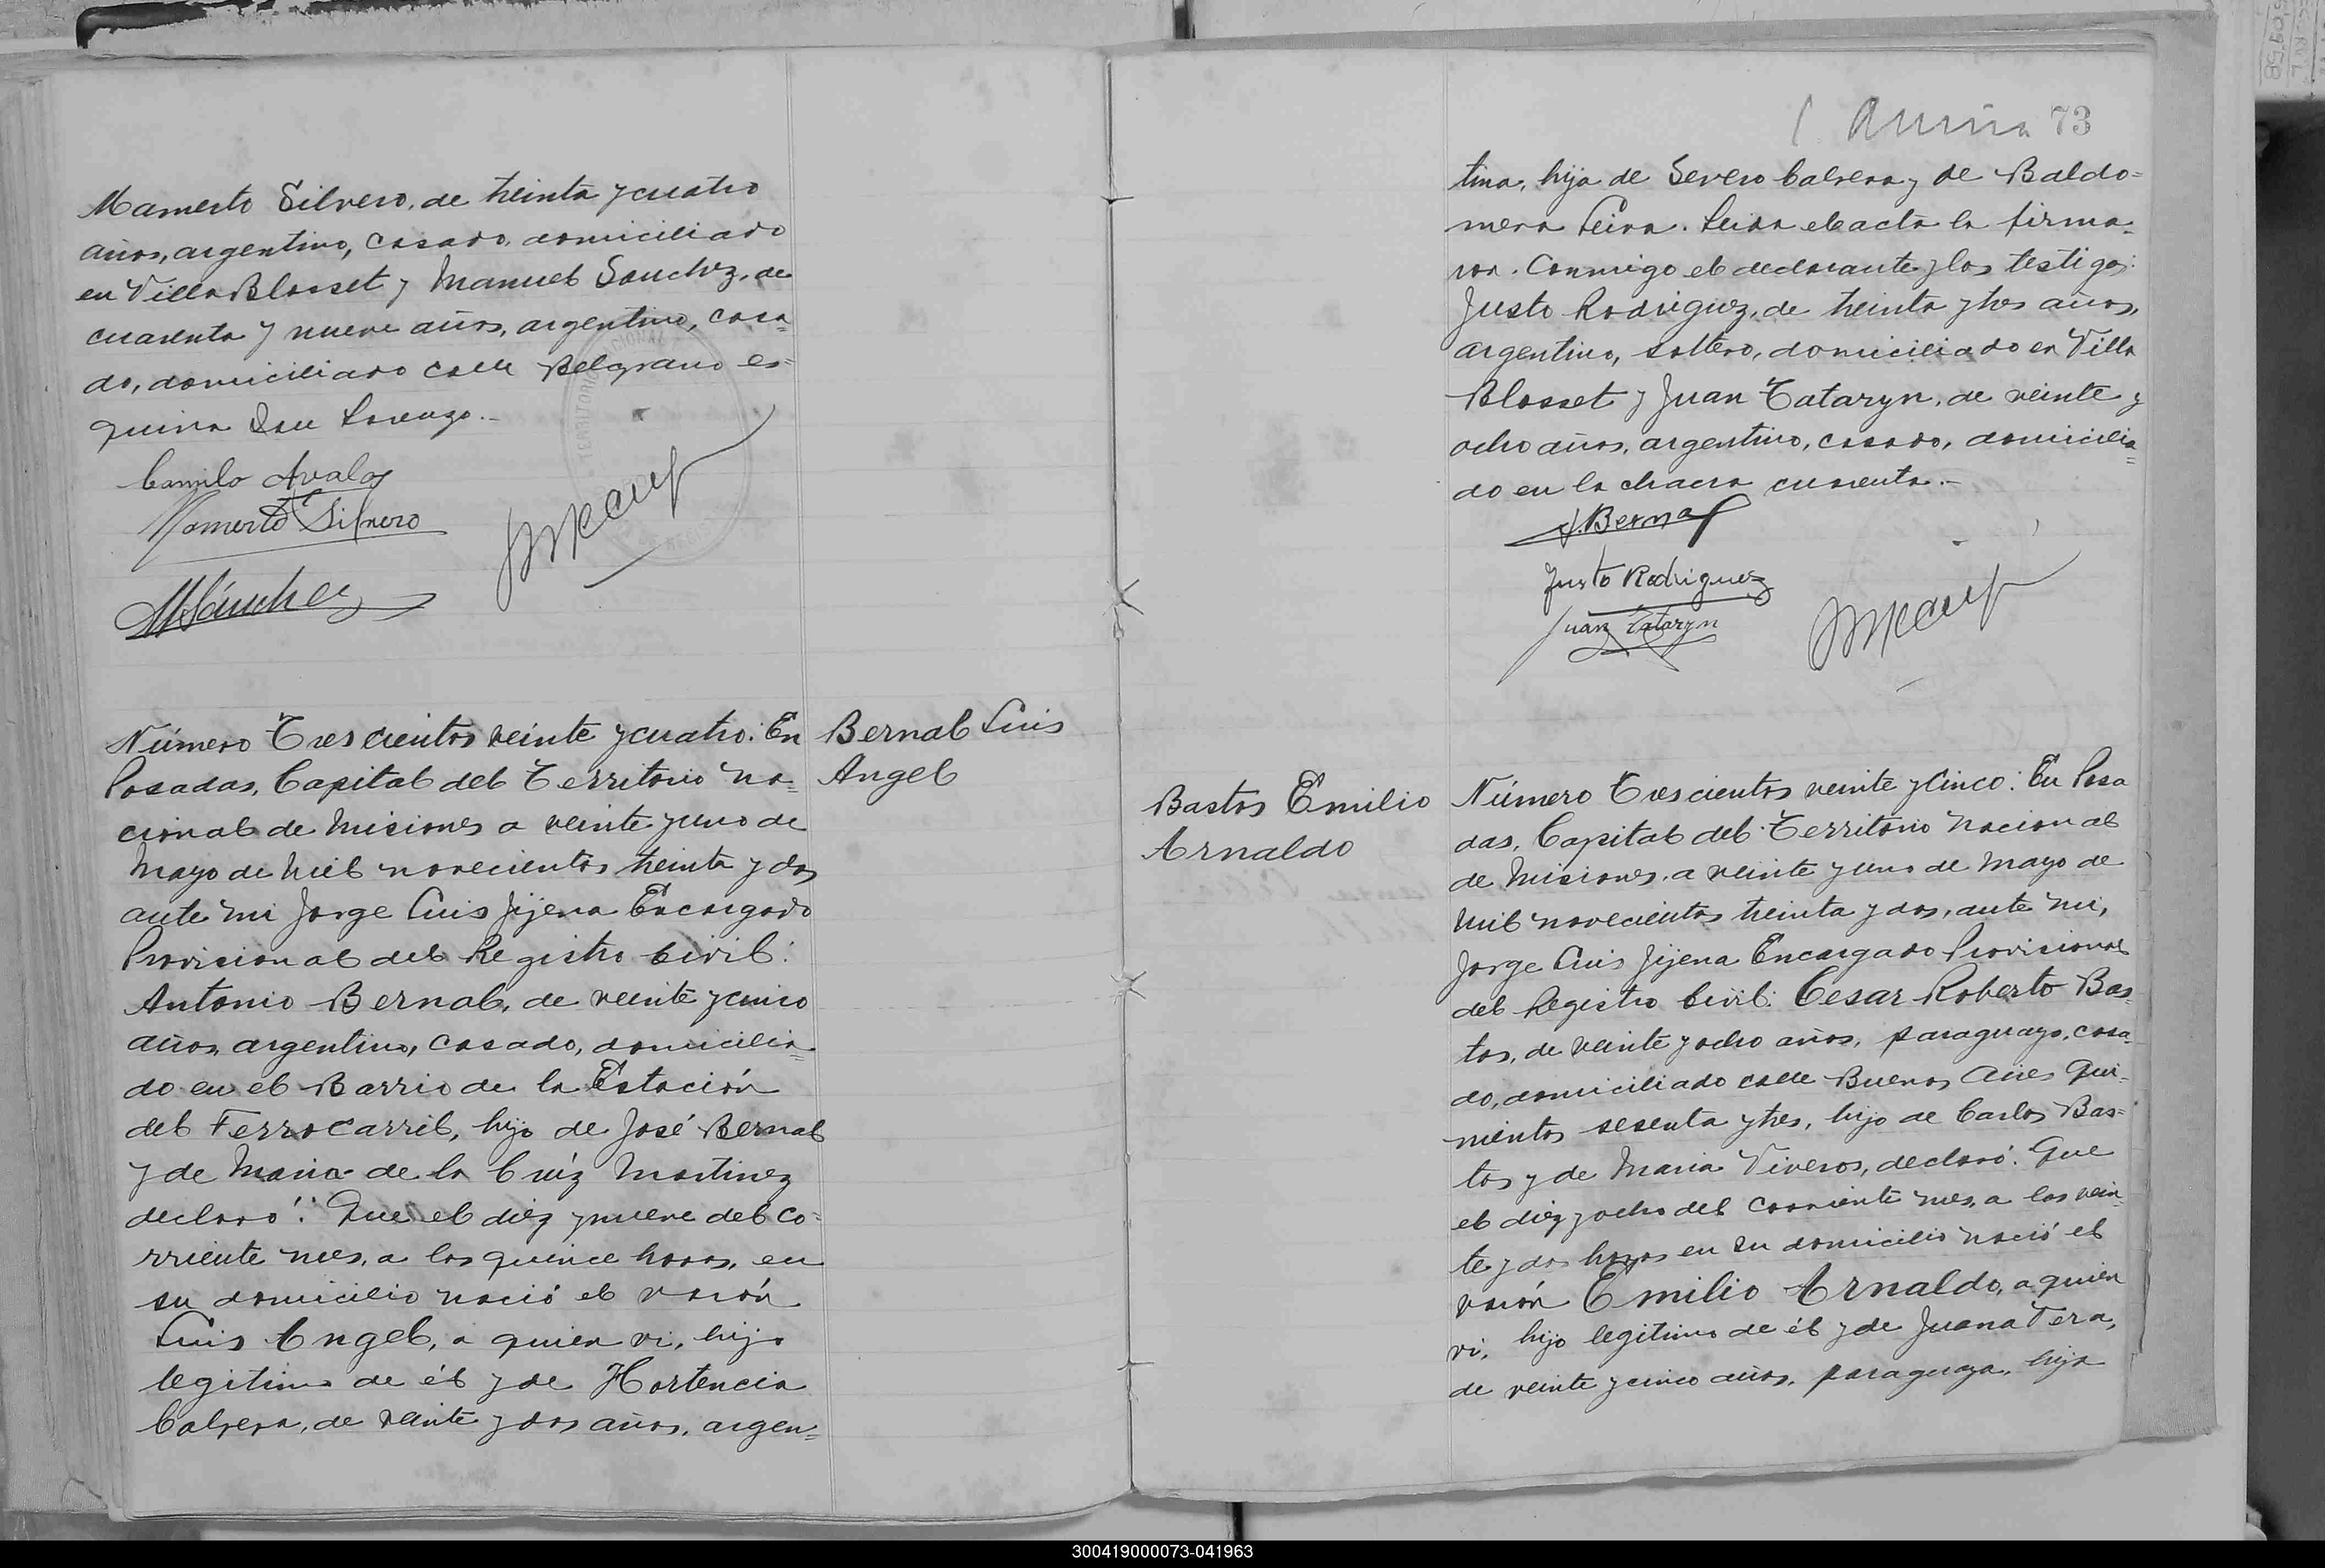 Mamerto Silvero, de treinta y cuatro
años, argentino, casado, domiciliado
en Villa Blosset y Manuel Sanchez, de
cuarenta y nueve años, argentino, casa=
do, domiciliado calle Belgrano es=
quina San Lorenzo.-
Camilo Avalos
Mamerto Silvero
MSánchez
Número Trescientos veinte y cuatro: En
Posadas, Capital del Territorio na=
cional de Misiones a veinte y uno de
Mayo de mil novecientos treinta y dos
ante mi Jorge Luis Jijena Encargado
Provisional del Registro Civil:
Antonio Bernal, de veinte y cinco
años, argentino, casado, domicilia=
do en el Barrio de la Estación
del Ferrocarril, hijo de José Bernal
y de Maria de la Cruz Martinez
declaró: Que el diez y nueve del co=
rriente mes, a las quince horas, en
su domicilio nació el varón
Luis Angel, a quien vi, hijo
legitimo de él y de Hortencia
Cabrera, de veinte y dos años, argen=
Bernal Luis
Angel
73
tina, hija de Severo Cabrera y de Baldo=
mera Leiva. Leida el acta la firma=
ron. Conmigo el declarante y los testigos:
Justo Rodriguez, de treinta y tres años,
argentino, soltero, domiciliado en Villa
Blosset y Juan Tataryn, de veinte y
ocho años, argentino, casado, domicilia=
do en la chacra cuarenta.-
A. Bernal
Justo Rodriguez
Juan Tataryn
Bastos Emilio
Arnaldo
Número Trescientos veinte y cinco: En Posa
das, Capital del Territorio nacional
de Misiones a veinte y uno de Mayo de
mil novecientos treinta y dos, ante mi,
Jorge Luis Jijena Encargado Provisional
del Registro Civil: Cesar Roberto Bas=
tos, de veinte y ocho años, paraguayo, casa=
do, domiciliado calle Buenos Aires Qui=
nientos sesenta y tres, hijo de Carlos Bas=
tos y de Maria Viveros, declaró: Que
el diez y ocho del corriente mes, a las vein
te y dos horas en su domicilio nació el
varón Emilio Arnaldo, a quien
vi, hijo legitimo de él y de Juana Vera,
de veinte y cinco años, paraguaya, hija
300419000073-041963